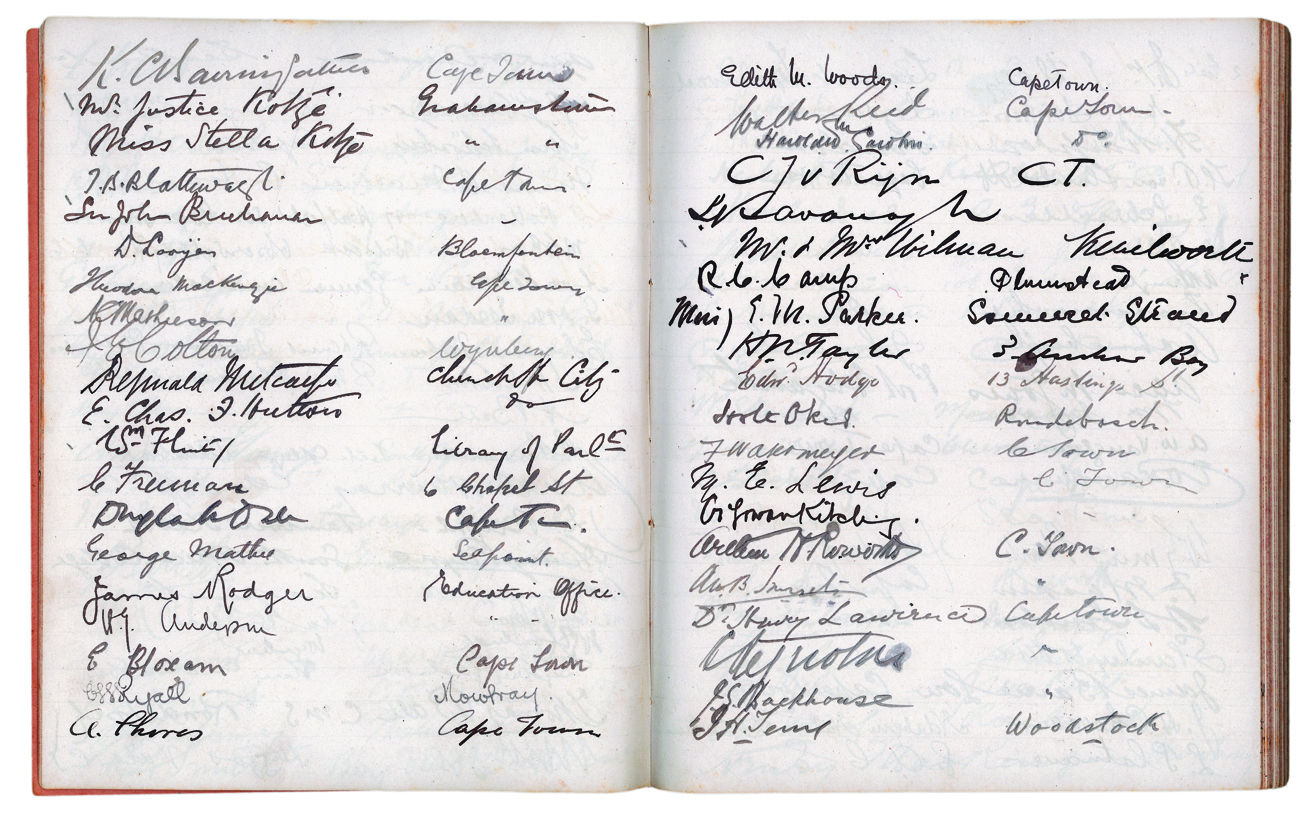 Cape Town
Mr. Justice Kotzé Grahamstown
Miss Stella Kotzé " "
Cape Town.
Sir John Buchanan "
D. Looyes Bloemfontein
Theodore Mackenzie Cape Town
Matheson "
Colton Wynberg.
Reginald Metcalfe Church St City
E. Chas. F. Hutton do
Wm Flint Library of Parlt
C Freeman 6 Chapel St
Cape Tn.
George Mathie Seapoint.
James Rodger Education Office.
W.J. Anderson " "
E Bloxam Cape Town
Ryall. Mowbray.
A. Cape Town
Edith M. Woods. Capetown.
Walter Reid Cape Town.
Harold do
C J v Rijn CT.
Kavanagh
Mr. & Mrs Wilman Kenilworth
R. C. Camp Plumstead
E. M. Parker. Somerset Strand
H Taylor 3 Anchor Bay
Edwd Hodgo 13 Hastings St
Rondebosch.
F Wakermeyer C Town
M. E. Lewis C Town
Kitching.
H Roworth C. Town.
"
Dr Henry Lawrence Capetown
"
J. S. Backhouse "
J. H. Woodstock